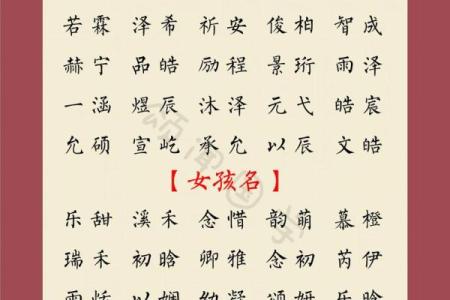 若霖 泽希 祈安 俊柏 智成
赫宁 品皓 励程 景珩 雨泽
一涵 煜辰 沐泽 元弋 皓宸
允硕 宣屹 承允 以辰 文皓
【女孩名】
乐甜 溪禾 念惜 韵萌 慕橙
瑞禾 初晗 卿雅 念初 芮伊
雨恬 以娴 幼凝 颂妍 乐晗
颂闻国学